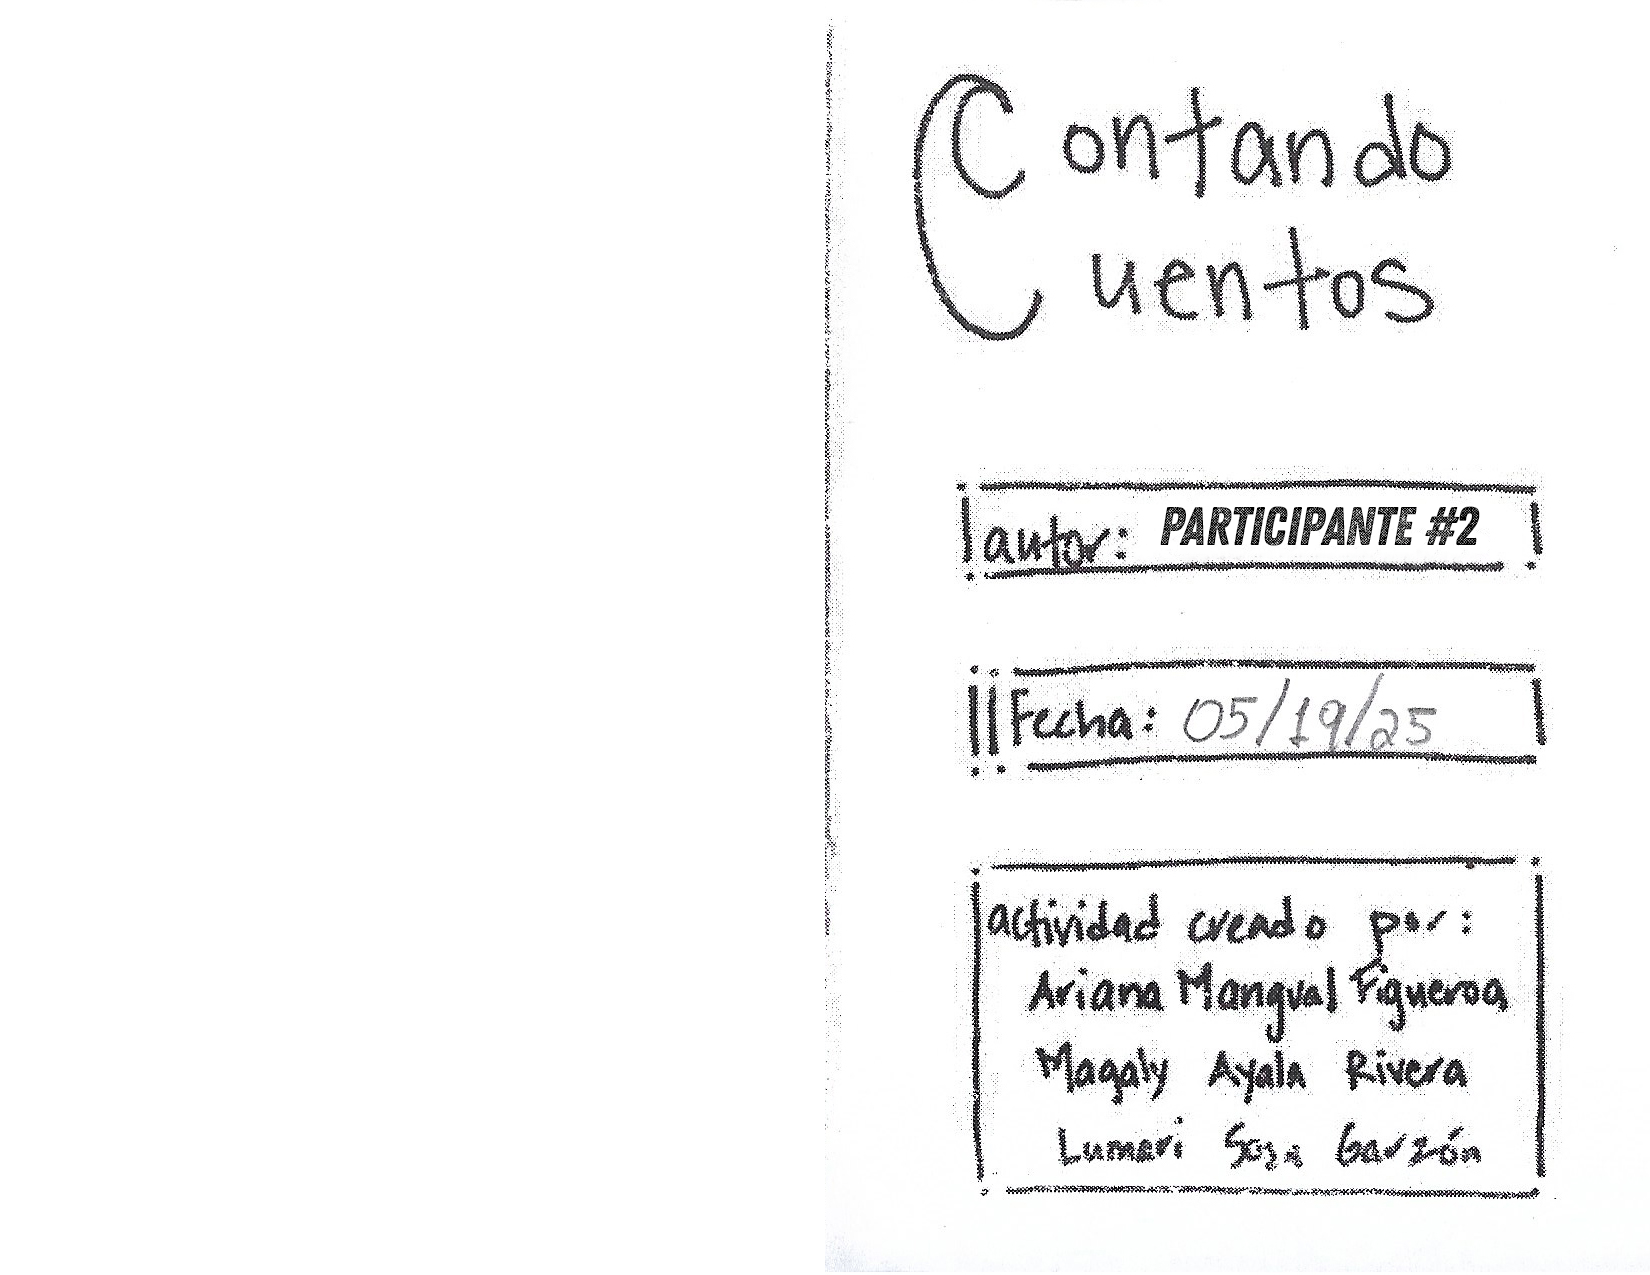 Contando
Cuentos
autor: PARTICIPANTE #2
Fecha: 05/19/25
actividad creado por:
Ariana Mangual Figueroa
Magaly Ayala Rivera
Lumari Sosa Garzón